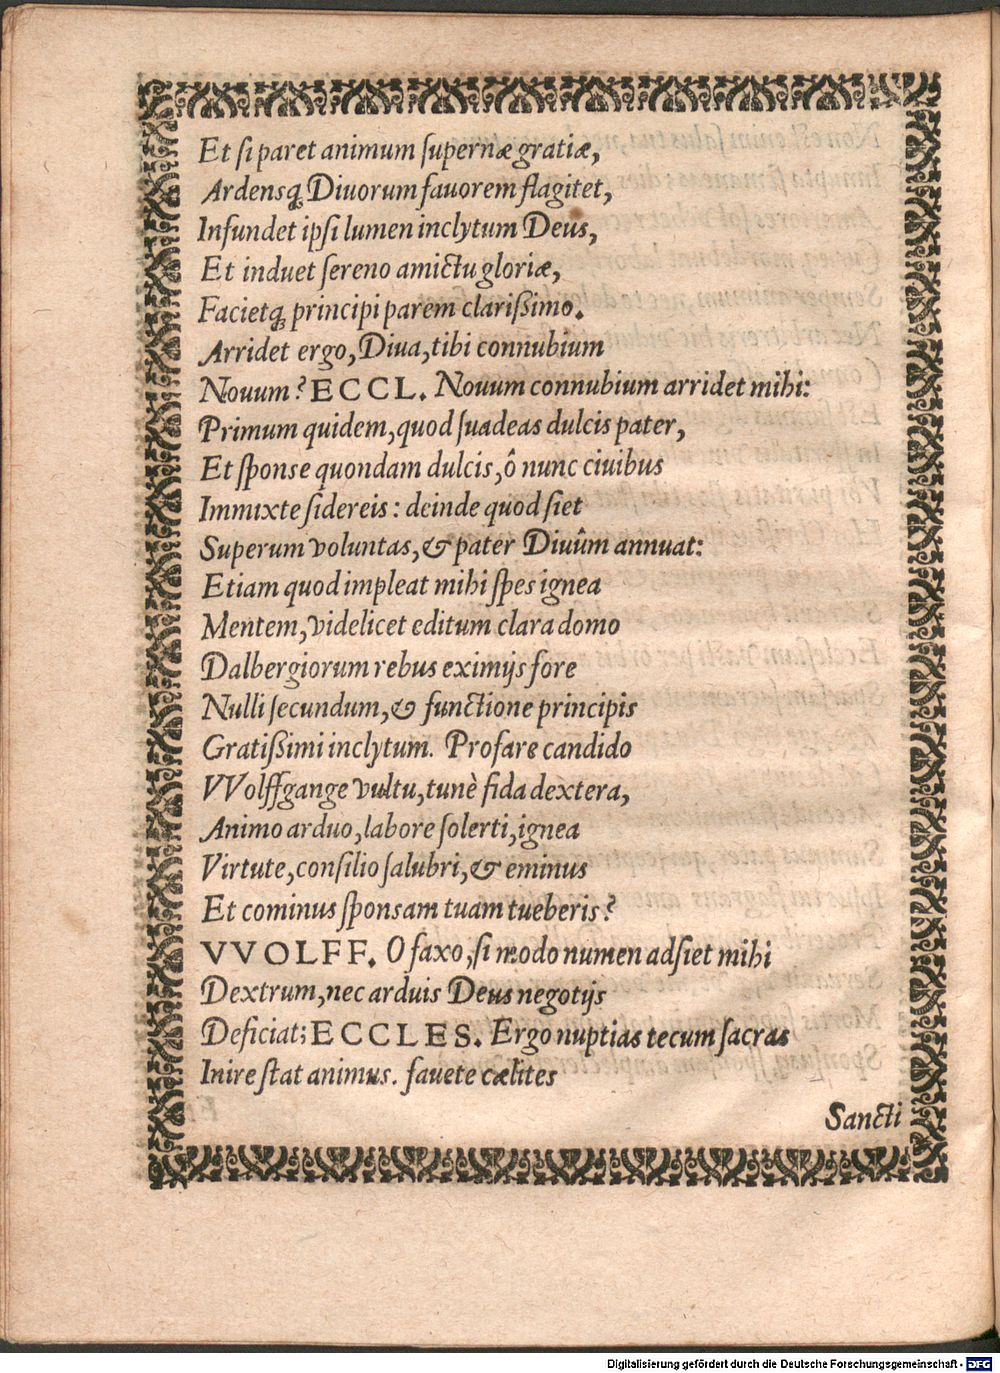 Et si paret animum supernæ gratiæ,
Ardensq́; Diuorum fauorem flagitet,
Infundet ipsi lumen inclytum Deus,
Et induet sereno amictu gloriæ,
Facietq́; principi parem clarißimo.
Arridet ergo, Diua, tibi connubium
Nouum? ECCL. Nouum connubium arridet mihi:
Primum quidem, quod suadeas dulcis pater,
Et sponse quondam dulcis, ô nunc ciuibus
Immixte sidereis: deinde quod siet
Superum voluntas, & pater Diuûm annuat:
Etiam quod impleat mihi spes ignea
Mentem, videlicet editum clara domo
Dalbergiorum rebus eximijs fore
Nulli secundum, & functione principis
Gratißimi inclytum. Profare candido
VVolffgange vultu, tunè fida dextera,
Animo arduo, labore solerti, ignea
Virtute, consilio salubri, & eminus
Et cominus sponsam tuam tueberis?
VVOLFF. O faxo, si modo numen adsiet mihi
Dextrum, nec arduis Deus negotijs
Deficiat; ECCLES. Ergo nuptias tecum sacras
Inire stat animus. fauete cælites
Sancti
Digitalisierung gefördert durch die Deutsche Forschungsgemeinschaft - DFG